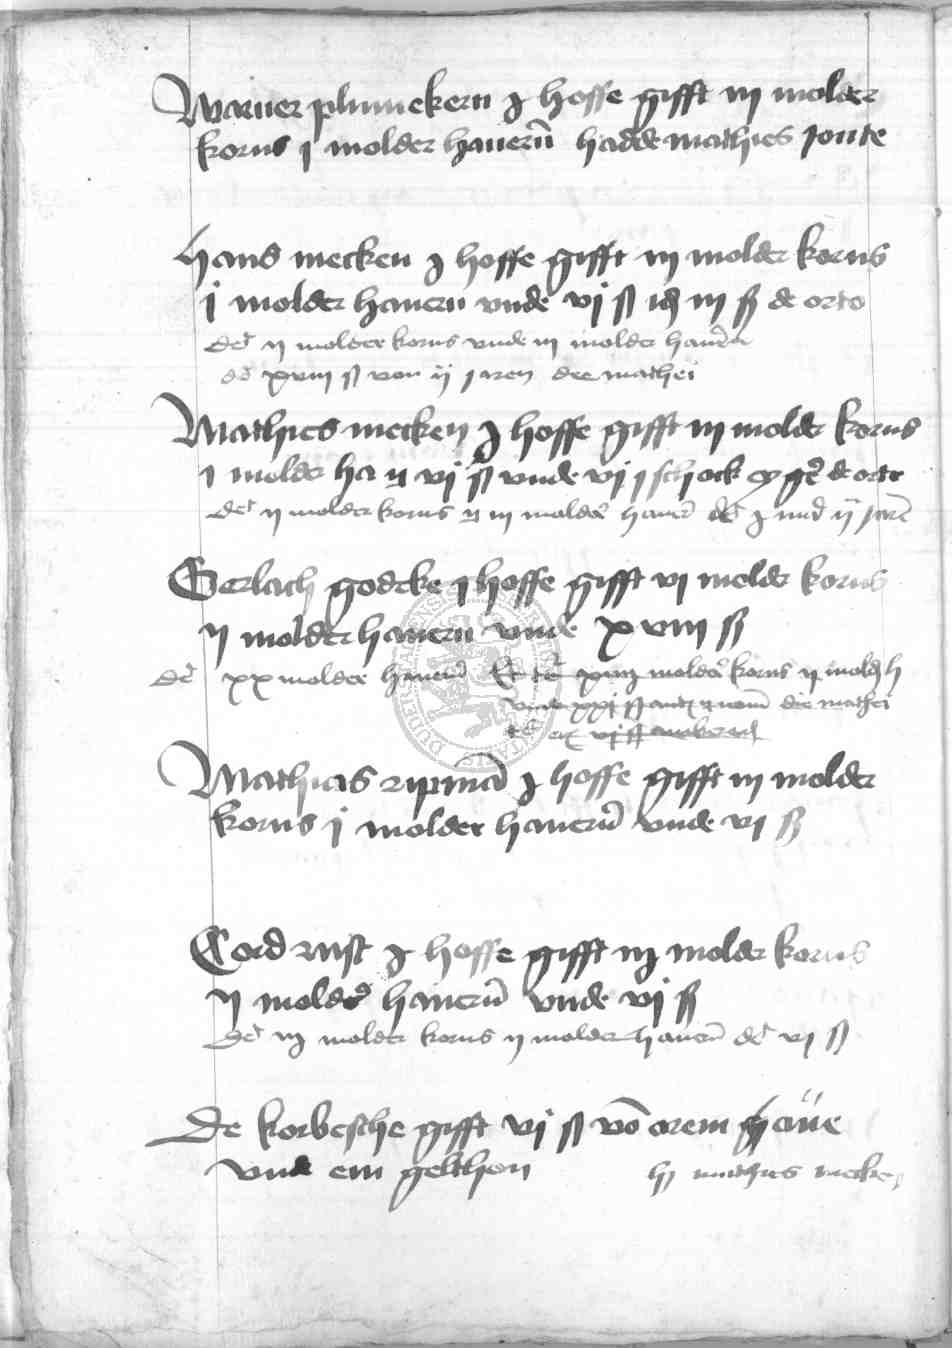 Warner plumekern j hoffe gifft iij molder
korns j molder hauern hadde mathies Jonte
Hans mecken j hoffe gifft iij molder korns
j molder hauern vnde vj ß iij ß de orto
ded ij molder korns vnde iij molder hauern
ded xviij ß von ij jaren die mathei
Mathies mecken j hoffe gifft iij molder korns
j molder ha vj ß vnde schock de orto
ded ij molder korns iij molder hauern ded
Gerlach godeke j hoffe gifft vj molder korns
ij molder hauern vnde xviij ß
ded xx molder hauern molder korns
die mathei
Mathias ripman j hoffe gifft iij molder
korns j molder hauern vnde vj ß
Cord rust j hoffe gifft iij molder korns
ij molder hauern vnde vj ß
ded iij molder korns ij molder hauern ded vj ß
De korbesche gifft vj ß von orem houe
vnde em gelthen mathies mecken